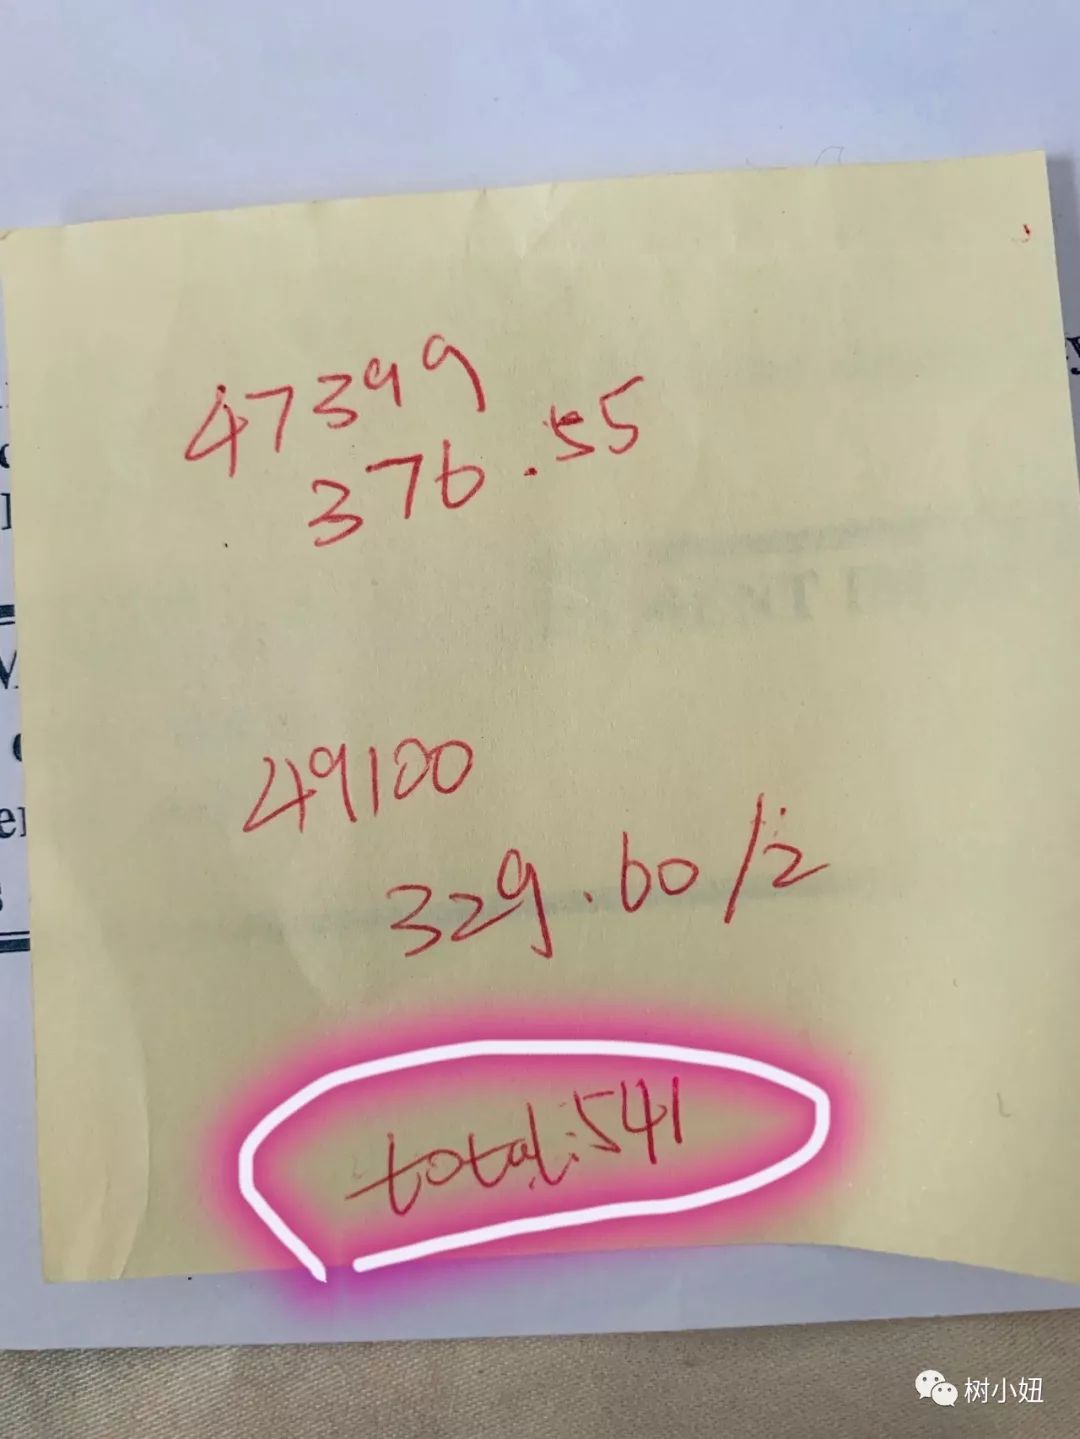 47399
376.55
49100
329.60/2
total:541
树小妞